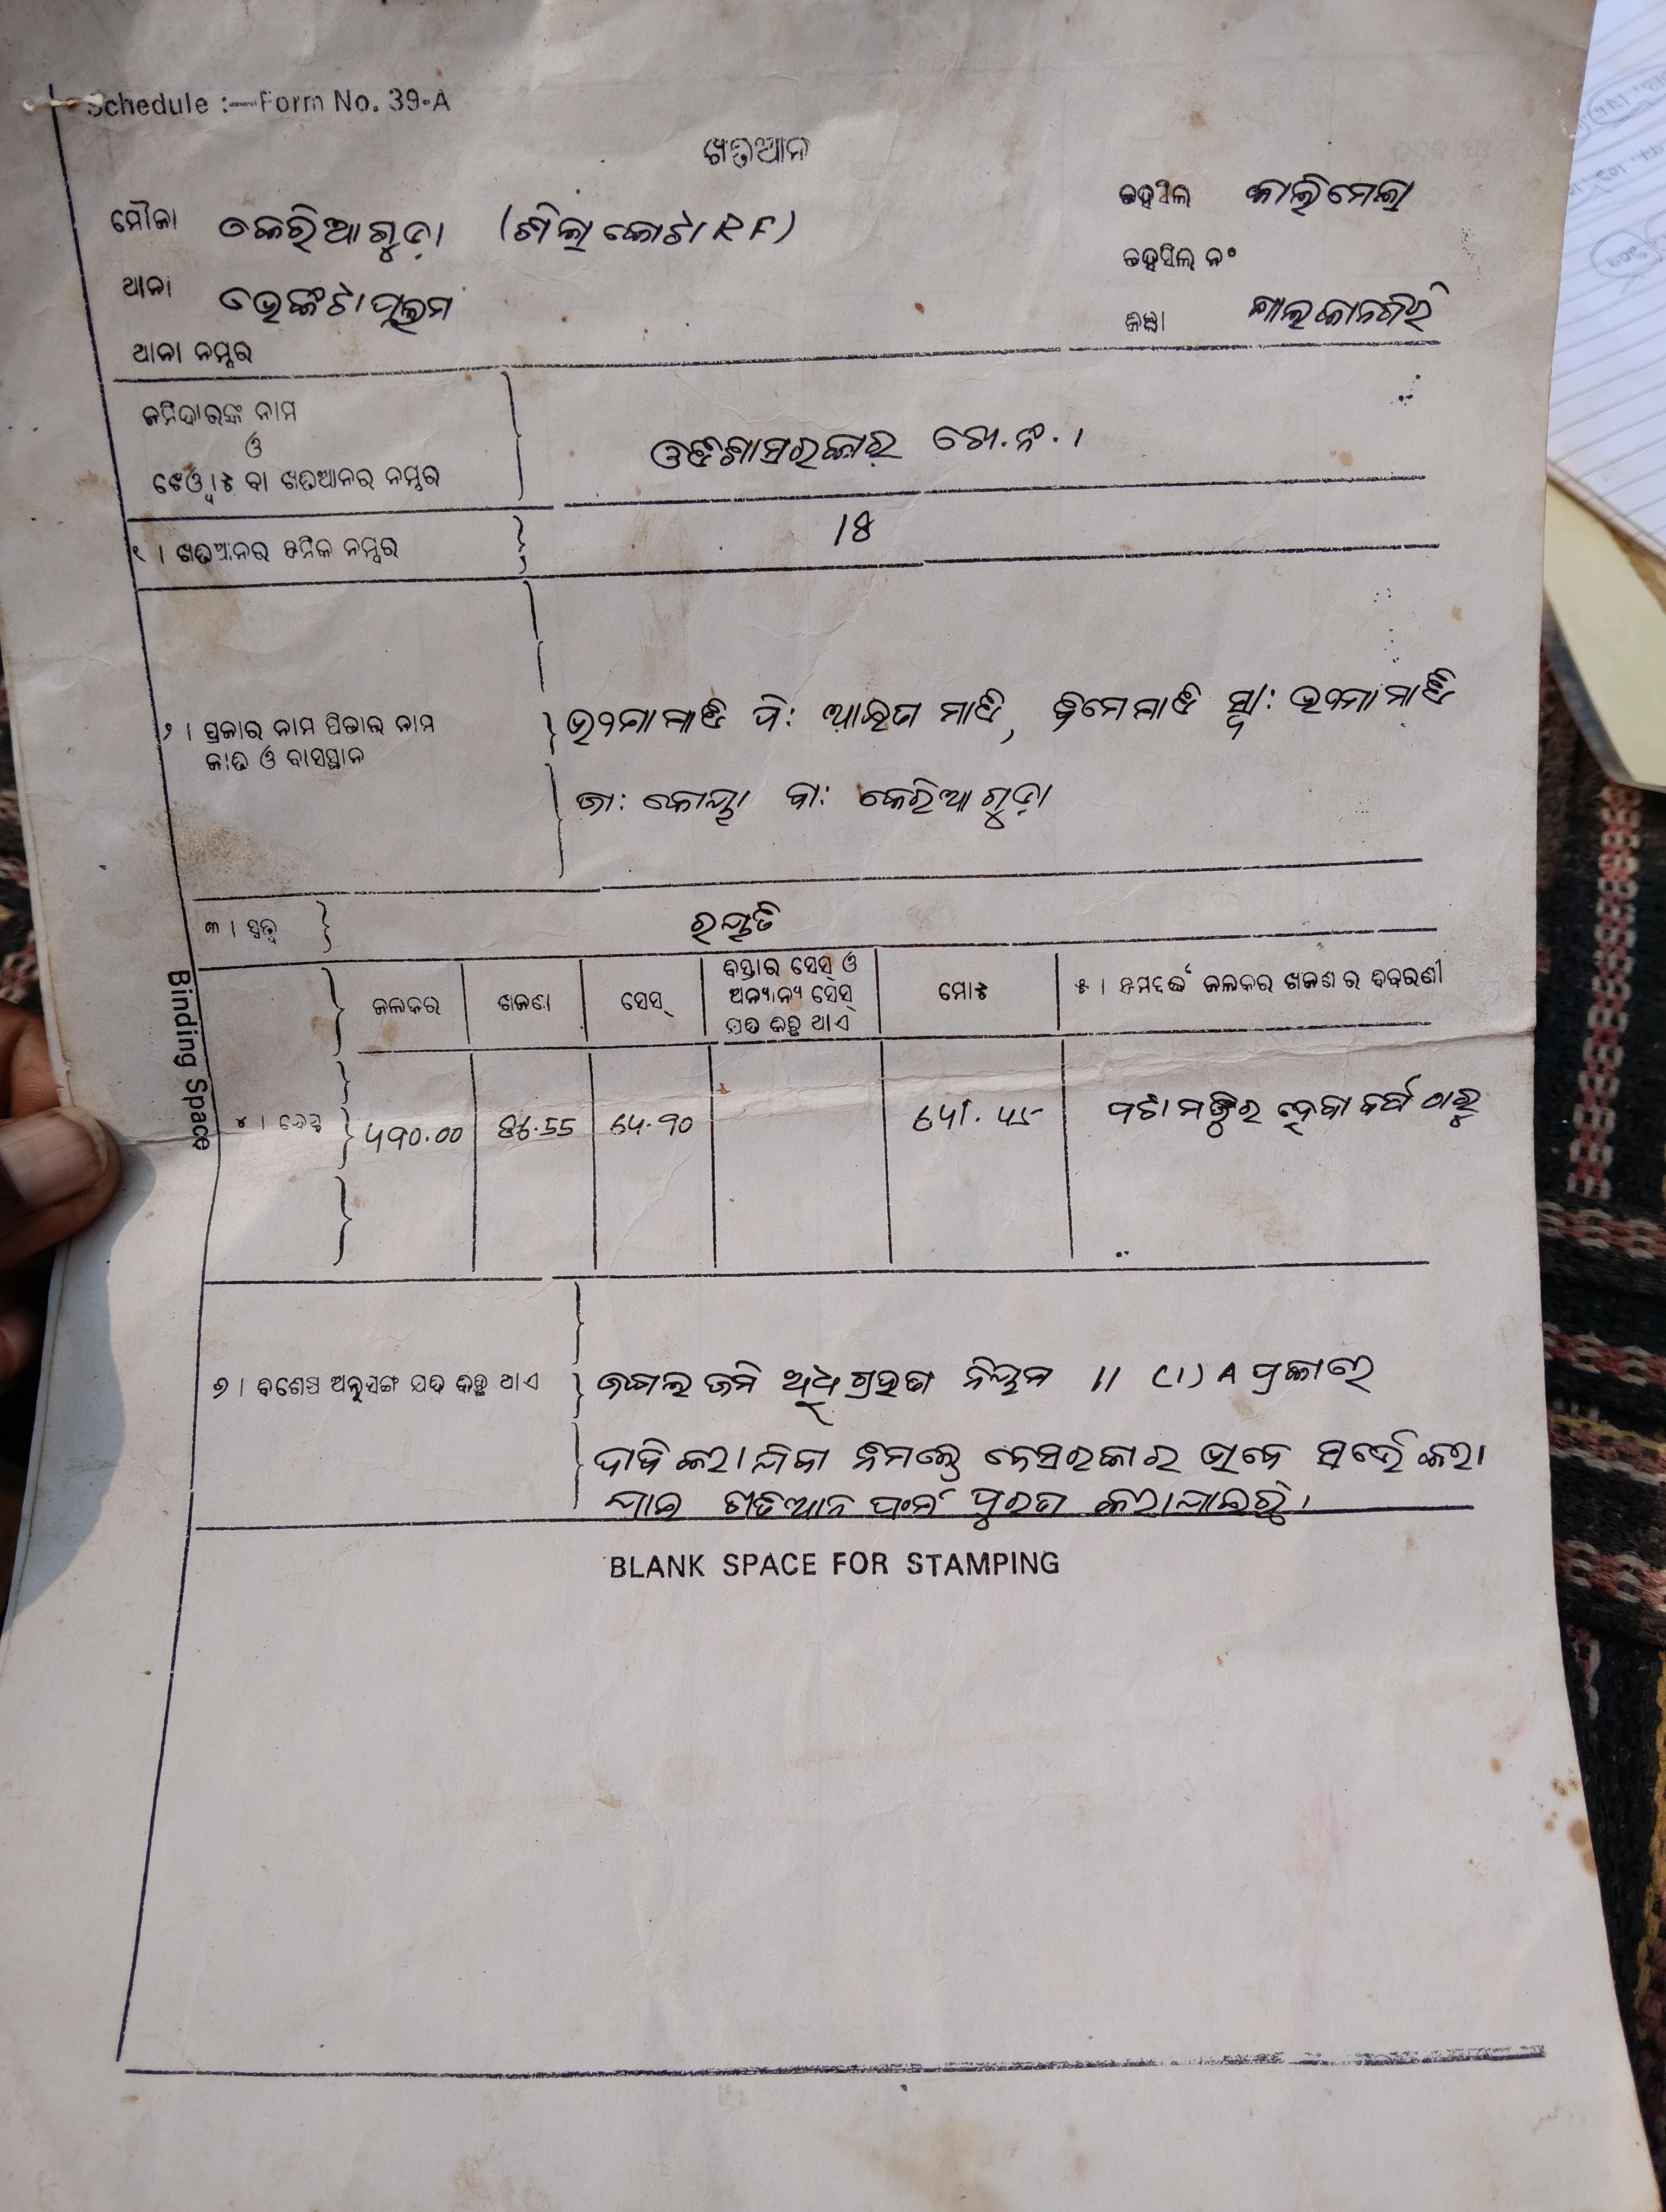 Schedule :—Form No. 39-A
ଖତିଆନ
ମୌଜା କେରିଆଗୁଡ଼ା (ଶିଲାକୋଟା RF)
ତହସିଲ କାଲିମେଲା
ଥାନା ଭେଙ୍କଟାପାଲମ
ତହସିଲ ନଂ
ଥାନା ନମ୍ବର
ଜିଲ୍ଲା ମାଲକାନଗିରି
ଜମିଦାରଙ୍କ ନାମ
ଓ
ଖେୱାଟ ବା ଖତିଆନର ନମ୍ବର
ଓଡିଶା ସରକାର ଖେ.ନଂ. ୧
୧ । ଖତିଆନର କ୍ରମିକ ନମ୍ବର
15
୨ । ପ୍ରଜାର ନାମ ପିତାର ନାମ
ଜାତି ଓ ବାସସ୍ଥାନ
ମାଝି ପି: ମାଝି, ସ୍ବା: ମାଝି
ଜା: କୋୟା ବା: କେରିଆଗୁଡ଼ା
୩ । ସ୍ୱତ୍ୱ
ରୟତି
ଜଳକର
ଖଜଣା
ସେସ୍
ବିସ୍ତାର ସେସ୍ ଓ
ଅନ୍ୟାନ୍ୟ ସେସ୍
ଯଦି କିଛି ଥାଏ
ମୋଟ
୫ । କ୍ରମବର୍ଦ୍ଧି ଜଳକର ଖଜଣାର ବିବରଣୀ
୪ । ଦେୟ
ପଟା ମଞ୍ଜୁର ହେବା ବର୍ଷ ଠାରୁ
୬ । ବିଶେଷ ଅନୁସଙ୍ଗ ଯଦି କିଛି ଥାଏ
ଜଙ୍ଗଲ ଜମି ନିୟମ 11 (1) A ପ୍ରକାରେ
ଦାବି କରାଯିବା ନିମନ୍ତେ ବେସରକାରୀ ଭାବେ ସର୍ଭେ କରା
ଯାଇ ଖତିଆନ ଫର୍ମ ପୁରଣ କରାଯାଇଛି ।
Binding Space
BLANK SPACE FOR STAMPING